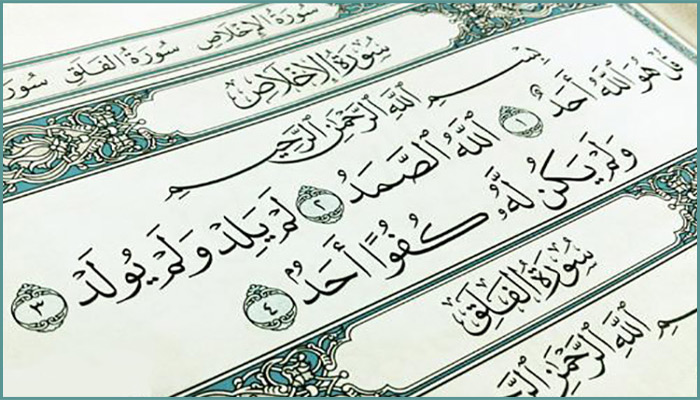 سُورَةُ الإِخْلَاصِ سُورَةُ الفَلَقِ سُورَةُ
سُورَةُ الإِخْلَاصِ
بِسْمِ اللَّهِ الرَّحْمَٰنِ الرَّحِيمِ
قُلْ هُوَ اللَّهُ أَحَدٌ ١ اللَّهُ الصَّمَدُ ٢ لَمْ يَلِدْ وَلَمْ يُولَدْ ٣
وَلَمْ يَكُن لَّهُ كُفُوًا أَحَدٌ ٤
سُورَةُ الفَلَقِ
اللَّهِ الرَّحْمَٰنِ